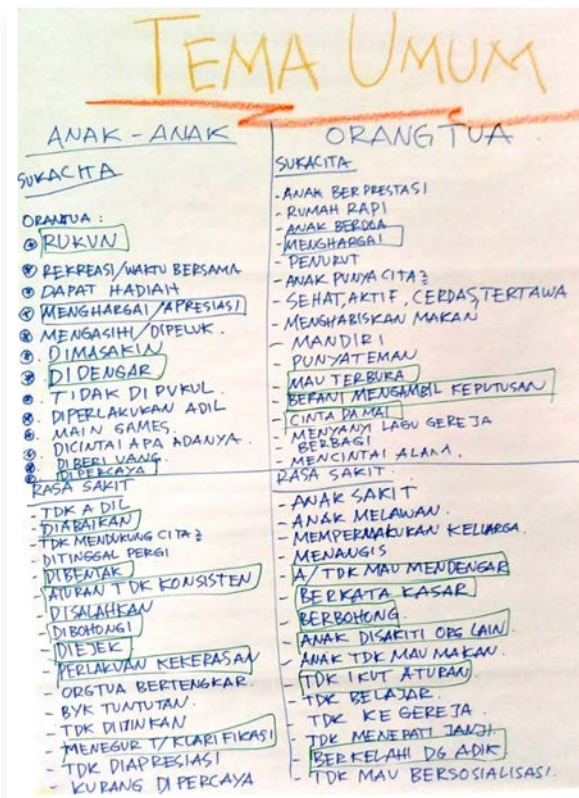 TEMA UMUM
ANAK - ANAK
SUKACITA
ORANGTUA :
RUKUN
REKREASI/WAKTU BERSAMA
DAPAT HADIAH
MENGHARGAI/APRESIASI
MENGASIHI/DIPELUK.
DIMASAKIN
DIDENGAR
TIDAK DI PUKUL.
DIPERLAKUKAN ADIL
MAIN GAMES.
DICINTAI APA ADANYA.
DIBERI UANG.
DIPERCAYA
RASA SAKIT
- TDK ADIL
- DIABAIKAN
- TDK MENDUKUNG CITA2
- DITINGGAL PERGI
- DIBENTAK
- ATURAN TDK KONSISTEN
- DISALAHKAN
- DIBOHONGI
- DIEJEK
- PERLAKUAN KEKERASAN
- ORGTUA BERTENGKAR.
- BYK TUNTUTAN.
- TDK DIIZINKAN
- MENEGUR T/ KLARIFIKASI
- TDK DIAPRESIASI
- KURANG DIPERCAYA
ORANGTUA.
SUKACITA
- ANAK BERPRESTASI
- RUMAH RAPI
- ANAK BERDOA
- MENGHARGAI
- PENURUT
- ANAK PUNYA CITA2
- SEHAT, AKTIF, CERDAS, TERTAWA
- MENGHABISKAN MAKAN
- MANDIRI
- PUNYA TEMAN
- MAU TERBUKA
- BERANI MENGAMBIL KEPUTUSAN
- CINTA DAMAI
- MENYANYI LAGU GEREJA
- BERBAGI
- MENCINTAI ALAM.
RASA SAKIT.
- ANAK SAKIT
- ANAK MELAWAN.
- MEMPERMALUKAN KELUARGA.
- MENANGIS
- A/ TDK MAU MENDENGAR
- BERKATA KASAR
- BERBOHONG.
- ANAK DISAKITI ORG LAIN.
- ANAK TDK MAU MAKAN.
- TDK IKUT ATURAN.
- TDK BELAJAR.
- TDK KE GEREJA.
- TDK MENEPATI JANJI.
- BERKELAHI DG ADIK
- TDK MAU BERSOSIALISASI.